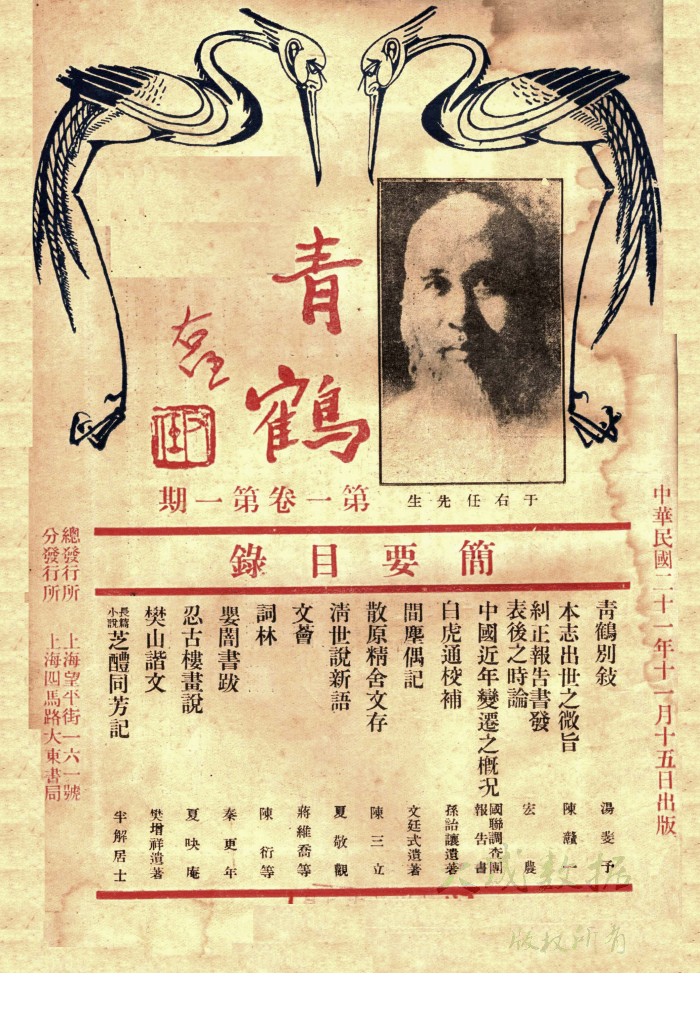 青鶴
右任
第一卷第一期
于右任先生
中華民國二十一年十一月十五日出版
總發行所 上海望平街一六一號
分發行所 上海四馬路大東書局
簡要目錄
青鶴別敍 湯斐予
本志出世之微旨 陳灨一
糾正報告書發
表後之時論 宏農
中國近年變遷之概況 國聯調查團報告書
白虎通校補 孫詒讓遺著
聞塵偶記 文廷式遺著
散原精舍文存 陳三立
清世說新語 夏敬觀
文薈 蔣維喬等
詞林 陳衍等
嬰闇書跋 秦更年
忍古樓畫說 夏映庵
樊山諧文 樊增祥遺著
長篇小說 芝醴同芳記 半解居士
大成数据
版权所有